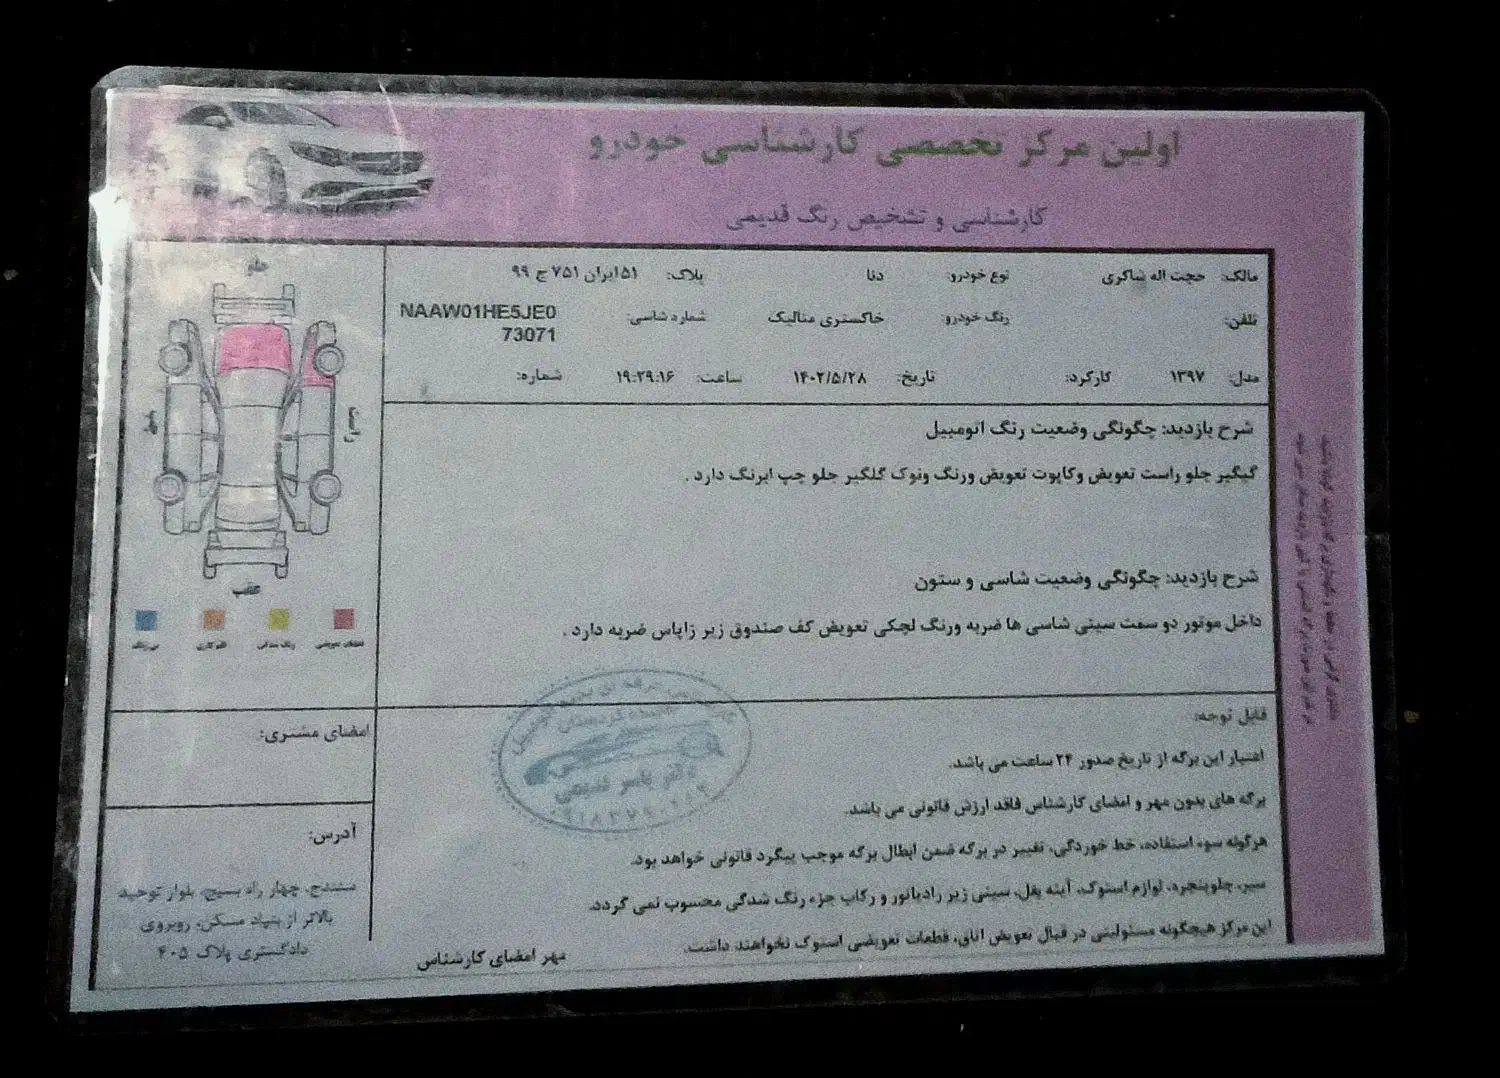 اولین مرکز تخصصی کارشناسی خودرو
کارشناسی و تشخیص رنگ قدیمی
مالک: حجت اله شاکری نوع خودرو: دنا پلاک: ۵۱ ایران ۷۵۱ ج ۹۹
تلفن: رنگ خودرو: خاکستری متالیک شماره شاسی: NAAW01HE5JE0
73071
مدل: ۱۳۹۷ کارکرد: تاریخ: ۱۴۰۲/۵/۲۸ ساعت: ۱۹:۲۹:۱۶ شماره:
شرح بازدید: چگونگی وضعیت رنگ اتومبیل
گیگیر جلو راست تعویض وکاپوت تعویض ورنگ ونوک گلگیر جلو چپ ابرنگ دارد .
شرح بازدید: چگونگی وضعیت شاسی و ستون
داخل موتور دو سمت سینی شاسی ها ضربه ورنگ لچکی تعویض کف صندوق زیر زاپاس ضربه دارد .
قابل توجه:
اعتبار این برگه از تاریخ صدور ۲۴ ساعت می باشد.
برگه های بدون مهر و امضای کارشناس فاقد ارزش قانونی می باشد.
هرگونه سوء استفاده، خط خوردگی، تغییر در برگه ضمن ابطال برگه موجب پیگرد قانونی خواهد بود.
سپر، جلوپنجره، لوازم استوک، آینه بغل، سینی زیر رادیاتور و رکاب جزء رنگ شدگی محسوب نمی گردد.
این مرکز هیچگونه مسئولیتی در قبال تعویض اتاق، قطعات تعویضی استوک نخواهند داشت.
مهر امضای کارشناس
جلو
راست
چپ
عقب
امضای مشتری:
آدرس:
سنندج، چهار راه بسیج، بلوار توحید
بالاتر از بنیاد مسکن، روبروی
دادگستری پلاک ۴۰۵
دکتر یاسر قدیمی